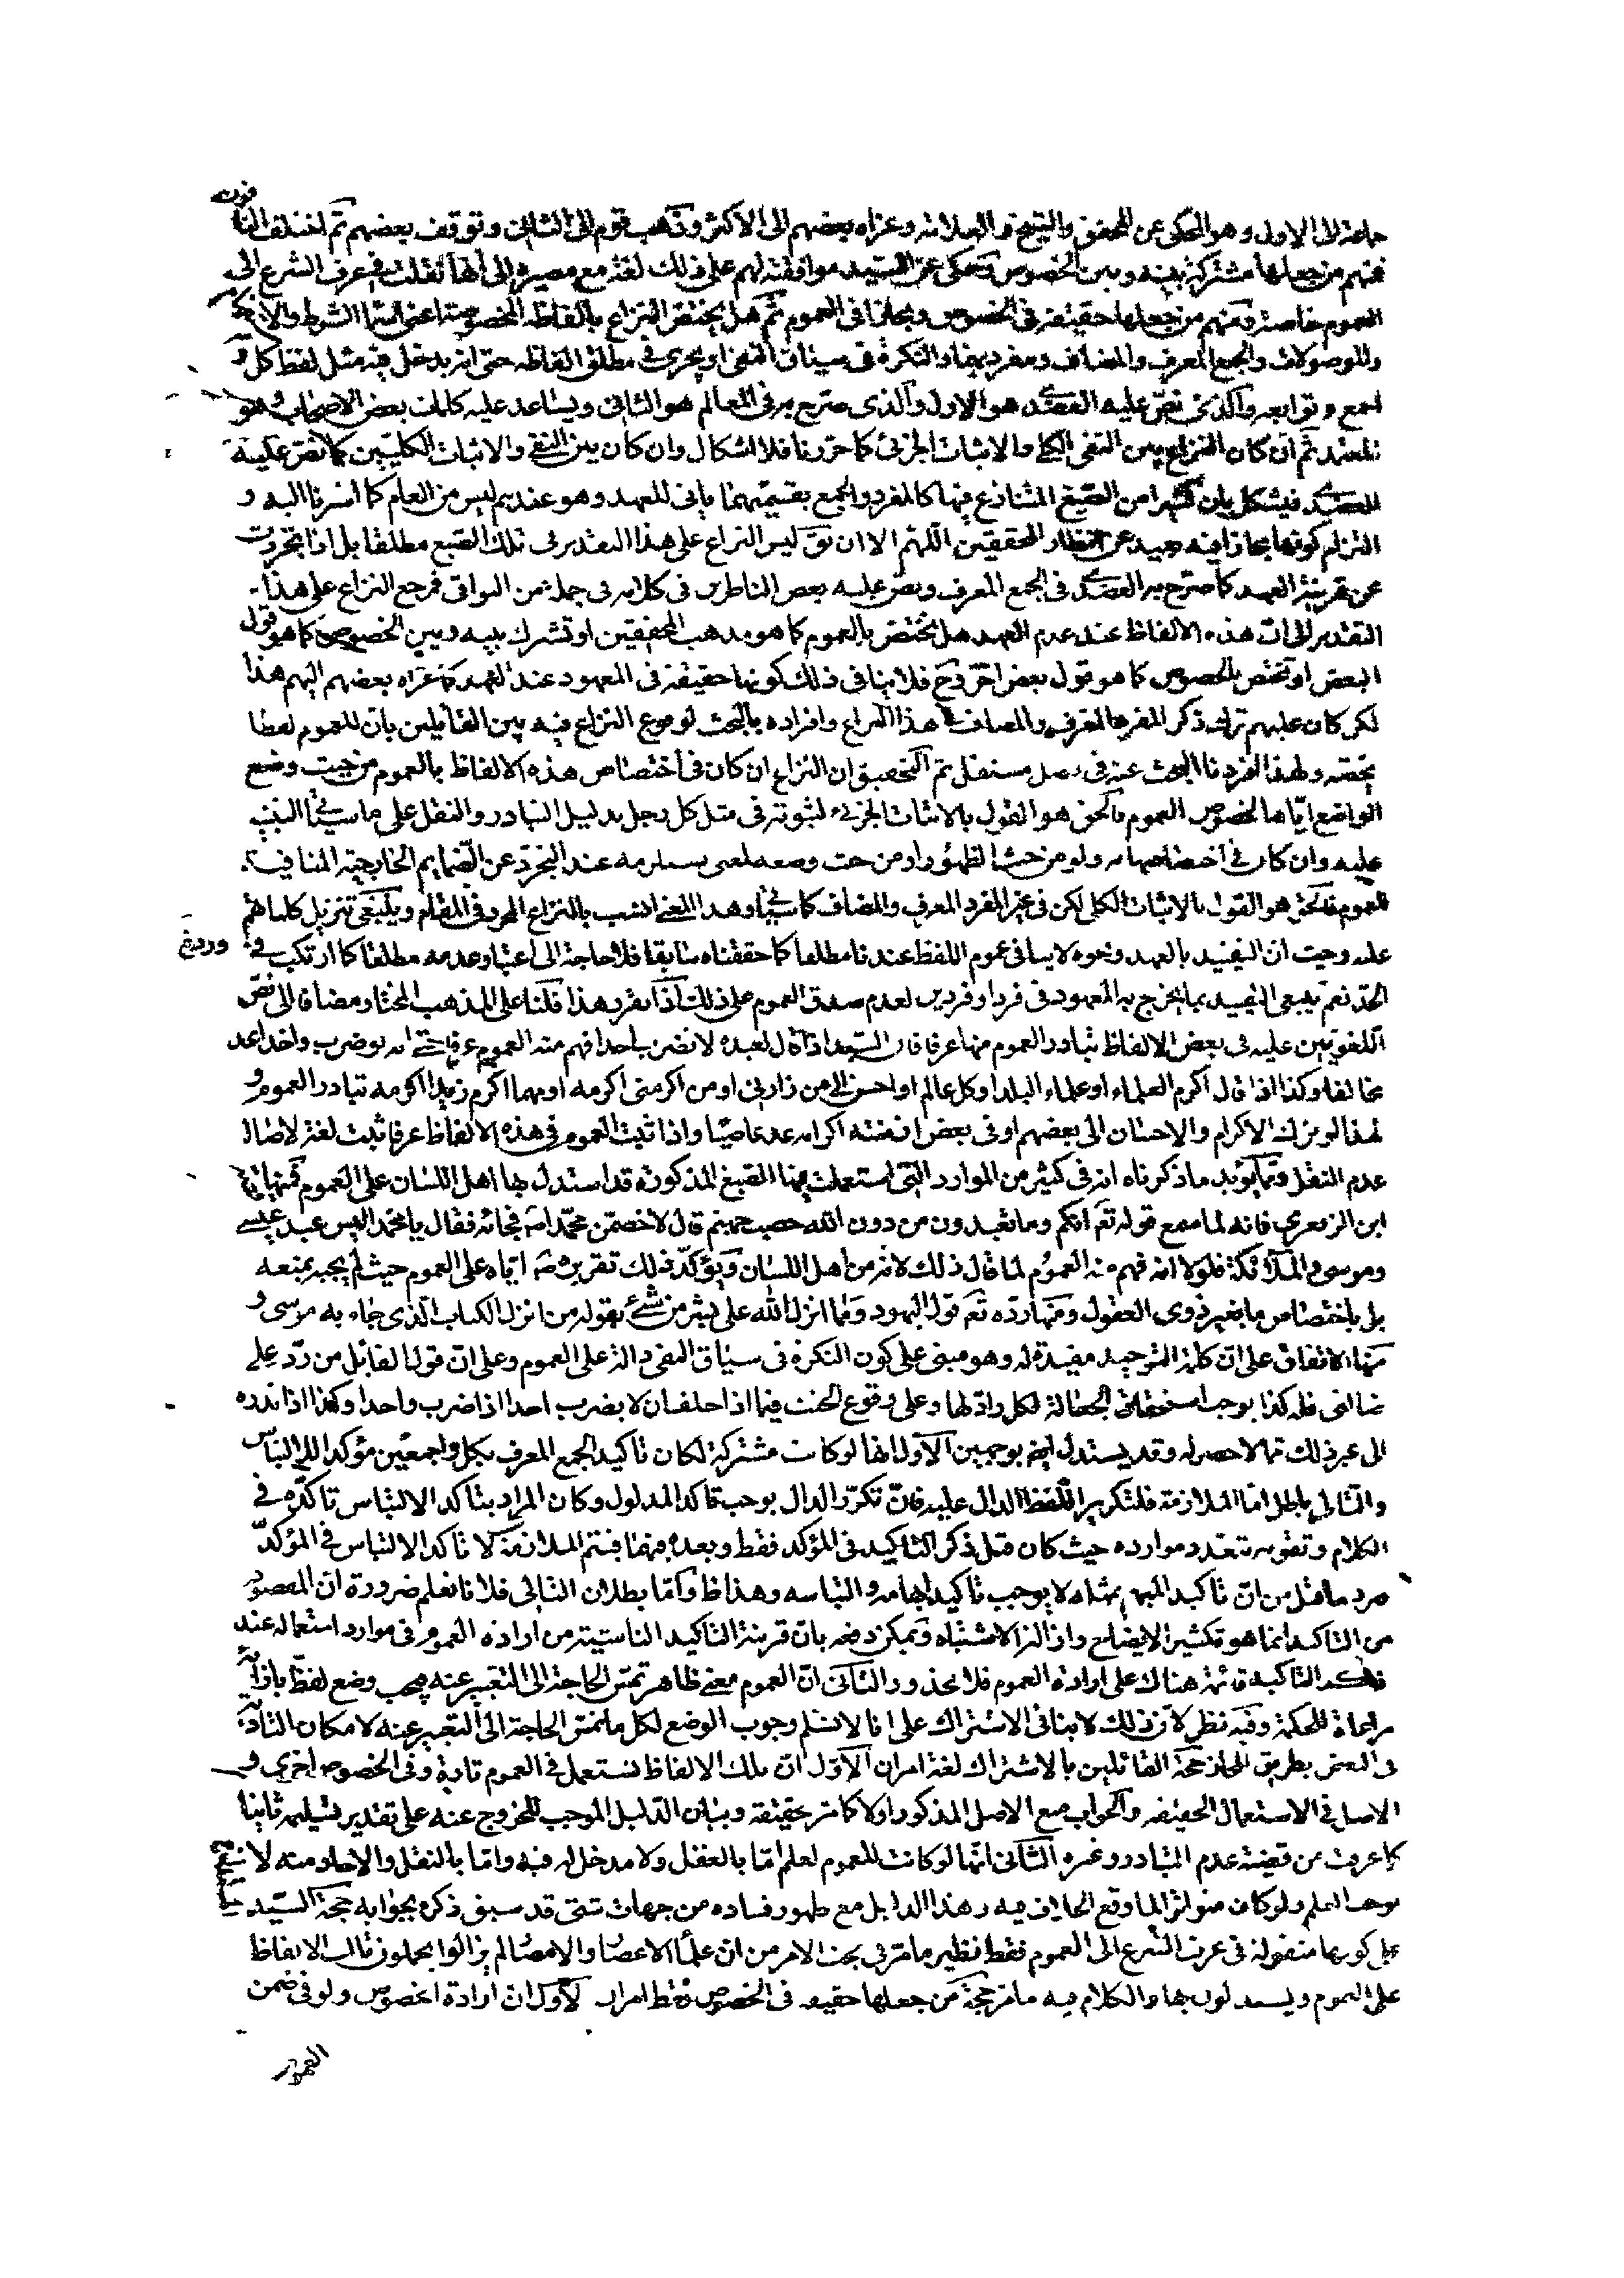 جماعة الى الاول وهو المحكى عن المحقق والشيخ والعلامة وعزاه بعضهم الى الاكثر وذهب قوم الى الثانى وتوقف بعضهم ثم اختلف النافون
فمنهم من جعلها مشتركة بينه وبين الخصوص وحكى عن السيد موافقته لهم على ذلك لغة مع مصيره الى انها نقلت فى عرف الشرع الى
العموم خاصة ومنهم من جعلها حقيقة فى الخصوص ومجازا فى العموم ثم هل يختص النزاع بالفاظه المخصوصة اعنى اسماء الشرط والاستفهام
والموصولات والجمع المعرف والمضاف ومفرديهما والنكرة فى سياق النفى او يجرى فى مطلق الفاظه حتى انه يدخل فيه مثل لفظ كل و
اجمع وتوابعه والذى نص عليه العضدى هو الاول والذى صرح به فى المعالم هو الثانى ويساعد عليه كلمات بعض الاصحاب وهو
المعتمد ثم ان كان النزاع بين النفى الكلى والاثبات الجزئى كما حررنا فلا اشكال وان كان بين النفى والاثبات الكليين كما نص عليه
العضدى فيشكل بان كثيرا من الصيغ المتنازع فيها كالمفرد والجمع بقسميهما ياتى للعهد وهو عندهم ليس من العام كما اشرنا اليه و
التزام كونها مجازا فيه بعيد عن انظار المحققين اللهم الا ان يق ليس النزاع على هذا التقدير فى تلك الصيغ مطلقا بل اذا تجردت
عن قرينة العهد كما صرح به العضدى فى الجمع المعرف ونص عليه بعض الناظرين فى كلامه فى جملة من البواقى فمرجع النزاع على هذا
التقدير الى ان هذه الالفاظ عند عدم العهد هل يختص بالعموم كما هو مذهب المحققين او تشترك بينه وبين الخصوص كما هو قول
البعض او تختص بالخصوص كما هو قول بعض اخر وح فلا ينافى ذلك كونها حقيقة فى المعهود عند العهد كما عزاه بعضهم اليهم هذا
لكن كان عليهم ترك ذكر المفرد المعرف والمضاف فى هذا النزاع وافراده بالبحث لوقوع النزاع فيه بين القائلين بان للعموم لفظا
يخصه ولهذا افردنا البحث عنه فى فصل مستقل ثم التحقيق ان النزاع ان كان فى اختصاص هذه الالفاظ بالعموم من حيث وضع
الواضع اياها لخصوص العموم فالحق هو القول بالاثبات الجزئى لثبوته فى مثل كل رجل بدليل التبادر والنقل على ما سياتى التنبيه
عليه وان كان فى اختصاصها به ولو من حيث الظهور او من حيث وضعه لمعنى يستلزمه عند التجرد عن الضمايم الخارجية المنافية
للعموم فالحق هو القول بالاثبات الكلى لكن فى غير المفرد المعرف والمضاف كما سياتى وهذا المعنى انسب بالنزاع المعروف فى المقام وينبغى تنزيل كلماتهم
عليه وحيث ان التقييد بالعهد ونحوه لا ينافى عموم اللفظ عندنا مطلقا كما حققناه سابقا فلا حاجة الى اعتبار عدمه مطلقا كما ارتكب فى
الحد نعم ينبغى التقييد بما يخرج به المعهود فى فرد او فردين لعدم صدق العموم على ذلك اذا تقرر هذا فلنا على المذهب المختار مضافا الى نص
اللغويين عليه فى بعض الالفاظ تبادر العموم منها عرفا فان السيد اذا قال لعبده لا تضرب احدا فهم منه العموم عرفا حتى انه لو ضرب واحدا عد
مخالفا وكذا اذا قال اكرم العلماء او علماء البلد او كل عالم او احسن الى من زارنى او من اكرمنى اكرمه او مهما اكرم زيدا اكرمه تبادر العموم و
لهذا لو ترك الاكرام والاحسان الى بعضهم او فى بعض ازمنته اكرامه عد عاصيا واذا ثبت العموم فى هذه الالفاظ عرفا ثبت لغة لاصالة
عدم النقل ومما يؤيد ما ذكرناه انه فى كثير من الموارد التى استعملت فيها الصيغ المذكورة قد استدل بها اهل اللسان على العموم فمنها
ابن الزبعرى فانه لما سمع قوله تعم انكم وما تعبدون من دون الله حصب جهنم قال لاخصمن محمدا ص فجائه فقال يا محمد اليس عبد عيسى
وموسى والملائكة فلولا انه فهم منه العموم لما قال ذلك لانه من اهل اللسان ويؤكد ذلك تقريره ص اياه على العموم حيث لم يجبه بمنعه
بل باختصاص ما بغير ذوى العقول ومنها رده تعم قول اليهود وما انزل الله على بشر من شئ بقوله من انزل الكتاب الذى جاء به موسى و
منها الاتفاق على ان كلمة التوحيد مفيدة له وهو مبنى على كون النكرة فى سياق النفى دالة على العموم وعلى ان قول القائل من رد على
ضالتى فله كذا يوجب استحقاق الجعالة لكل راد لها وعلى وقوع الحنث فيما اذا حلف ان لا يضرب احدا اذا ضرب واحدا وكذا اذا نذره
الى غير ذلك مما لا حصر له وقد يستدل ايض بوجهين الاول انها لو كانت مشتركة لكان تاكيد الجمع المعرف بكل واجمعين مؤكدا للالتباس
والتالى باطل اما الملازمة فلتكرير اللفظ الدال عليه فان تكرر الدال يوجب تاكد المدلول وكان المراد بتاكد الالتباس تاكده فى
الكلام وتقويه بتعدد موارده حيث كان قبل ذكر التاكيد فى المؤكد فقط وبعده فيهما فتتم الملازمة لا تاكد الالتباس فى المؤكد
فيرد ما قيل من ان تاكيد المبهم بمثله لا يوجب تاكيد ابهامه والتباسه وهذا ظ واما بطلان التالى فلانا نعلم ضرورة ان المقصود
من التاكيد انما هو تكثير الايضاح وازالة الاشتباه ويمكن دفعه بان قرينة التاكيد الناشية من ارادة العموم فى موارد استعماله عند
قصد التاكيد قائمة هناك على ارادة العموم فلا محذور والثانى ان العموم معنى ظاهر تمس الحاجة الى التعبير عنه فيجب وضع لفظ بازائه
مراعاة للحكمة وفيه نظر لان ذلك لا ينافى الاشتراك على انا لا نسلم وجوب الوضع لكل ما تمس الحاجة الى التعبير عنه لامكان التادية
فى البعض بطريق المجاز حجة القائلين بالاشتراك لغة امران الاول ان تلك الالفاظ تستعمل فى العموم تارة وفى الخصوص اخرى و
الاصل فى الاستعمال الحقيقة والجواب منع الاصل المذكور اولا كما مر تحقيقه وبيان الدليل الموجب للخروج عنه على تقدير تسليمه ثانيا
كما عرفت من قضية عدم التبادر وغيره الثانى انها لو كانت للعموم لعلم اما بالعقل ولا مدخل له فيه واما بالنقل والاحاد منه لا
يوجب العلم ولو كان متواترا لما وقع الخلاف فيه وهذا الدليل مع ظهور فساده من جهات شتى قد سبق ذكره بجوابه حجة السيد
على كونها منقولة فى عرف الشرع الى العموم فقط نظير ما مر فى بحث الامر من ان علماء الاعصار والامصار لم يزالوا يحملون تلك الالفاظ
على العموم ويستدلون بها والكلام فيه ما مر حجة من جعلها حقيقة فى الخصوص فقط امران الاول ان ارادة الخصوص ولو فى ضمن
العموم